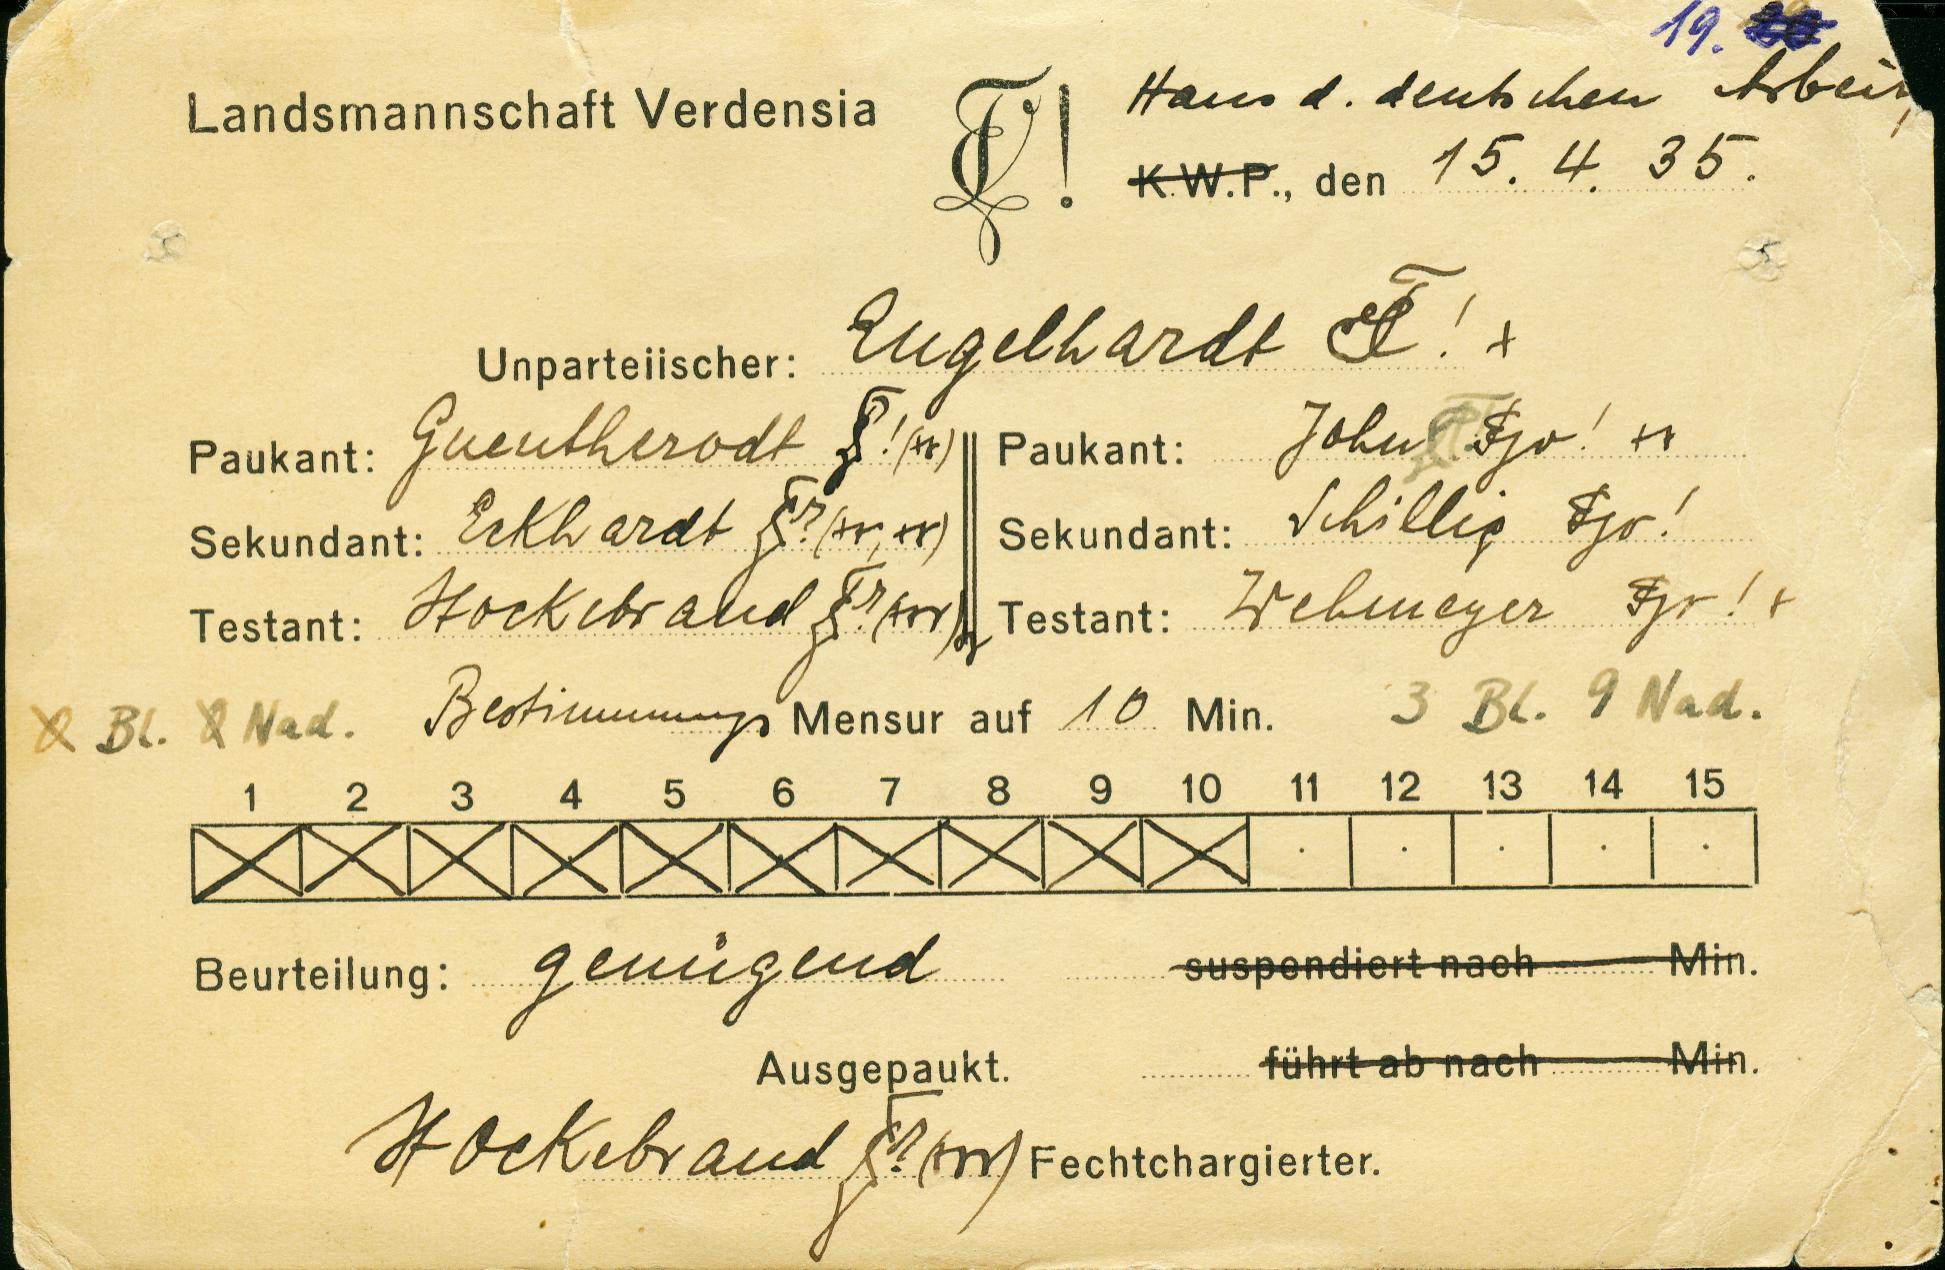 19.
Landsmannschaft Verdensia
Haus d. deutschen Arbeit,
K.W.P., den 15. 4. 35.
Unparteiischer: Engelhardt ! +
Paukant: Guentherodt ! (xx) Paukant: John ! xx
Sekundant: Eckhardt (xx, xx) Sekundant: Schillig !
Testant: Hockebrand Testant: Wehmeyer ! +
Bl. Nad. Bestimmungs Mensur auf 10 Min. 3 Bl. 9 Nad.
1 2 3 4 5 6 7 8 9 10 11 12 13 14 15
Beurteilung: genügend suspendiert nach Min.
Ausgepaukt. führt ab nach Min.
Hockebrand Fechtchargierter.